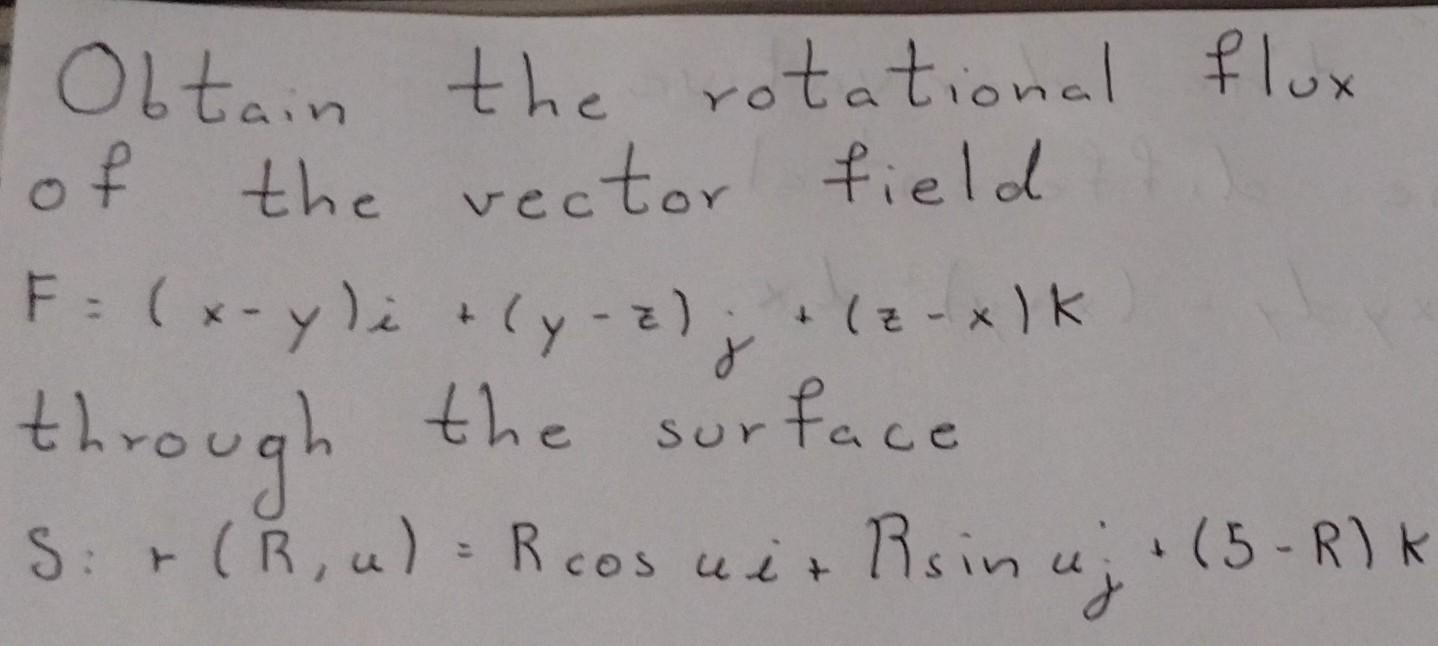 Obtain the rotational flux
of the vector field
F = (x-y)i + (y-z)j + (z-x)k
through the surface
S: r(R,u) = R cos u i + R sin u j + (5-R)k